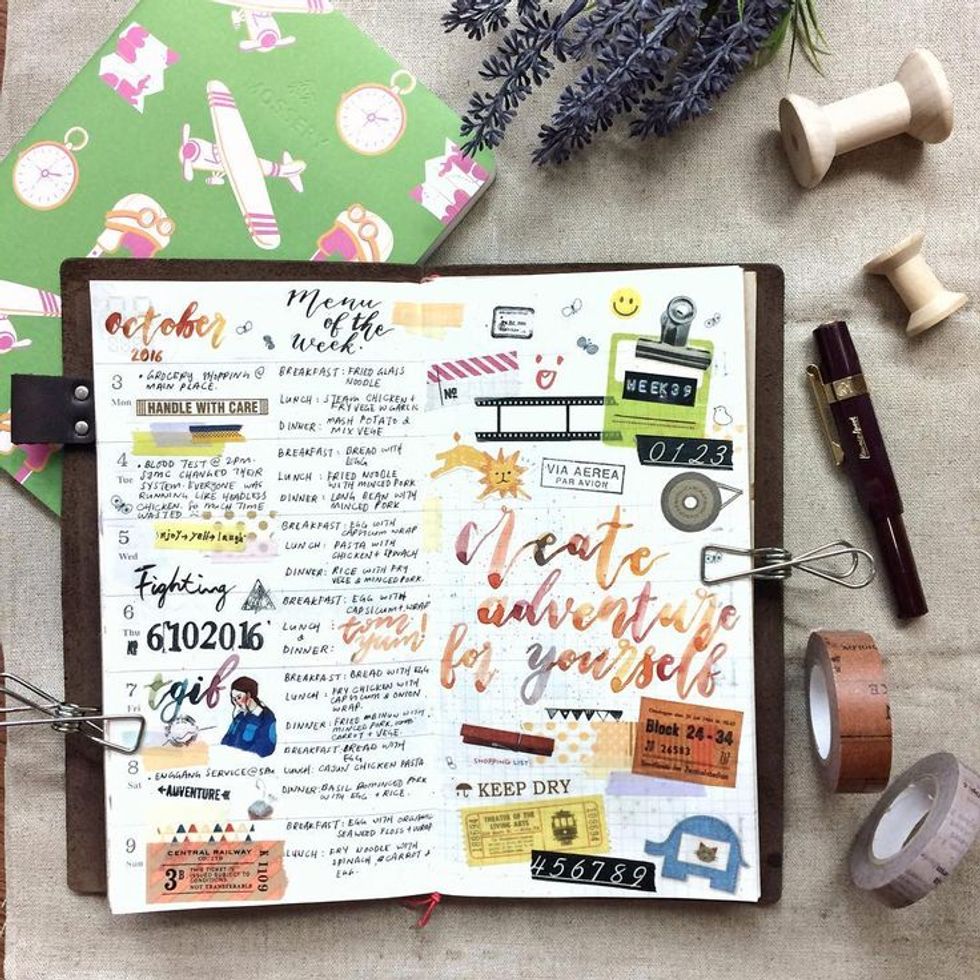 MOSSERY
october
2016
Menu
of the
week.
3
Mon
• GROCERY SHOPPING @
MAIN PLACE.
HANDLE WITH CARE
BREAKFAST: FRIED GLASS
NOODLE
LUNCH: STEAM CHICKEN +
FRY VEGE W GARLIC
DINNER: MASH POTATO &
MIX VEGE
4
Tue
• BLOOD TEST @ 2PM.
SJMC CHANGED THEIR
SYSTEM. EVERYONE WAS
RUNNING LIKE HEADLESS
CHICKEN. SO MUCH TIME
WASTED
BREAKFAST: BREAD WITH
EGG
LUNCH: FRIED NOODLE
WITH MINCED PORK
DINNER: LONG BEAN WITH
MINCED PORK
5
Wed
enjoy→yell→laugh
BREAKFAST: EGG WITH
CAPSICUM WRAP
LUNCH: PASTA WITH
CHICKEN + SPINACH
DINNER: RICE WITH FRY
VEGE & MINCED PORK.
Fighting
6
Thu
№
6102016
BREAKFAST: EGG WITH
CAPSICUM + WRAP
LUNCH
&
DINNER:
tom
yum!
7
Fri
tgif
BREAKFAST: BREAD WITH EGG
LUNCH: FRY CHICKEN WITH
CAPSICUM & ONION
WRAP.
DINNER: FRIED MEIHUN WITH
MINCED PORK
CARROT + VEGE.
8
Sat
• ENGGANG SERVICE @ 5PM
ADVENTURE
BREAKFAST: BREAD WITH
EGG
LUNCH: CAJUN CHICKEN PASTA
DINNER: BASIL MINCED PORK
WITH EGG + RICE.
9
Sun
CENTRAL RAILWAY
CO LTD
3B
THIS TICKET IS
ISSUED SUBJECT TO
CONDITIONS
NOT TRANSFERABLE
K 1109
BREAKFAST: EGG WITH ORGANIC
SEAWEED FLOSS + WRAP
LUNCH: FRY NOODLE WITH
SPINACH, CARROT &
EGG.
№
WEEK39
0123
VIA AEREA
PAR AVION
Create
adventure
for yourself
Block 24-34
26583
SHOPPING LIST
KEEP DRY
THEATRE OF THE
LIVING ARTS
188694
188694
456789